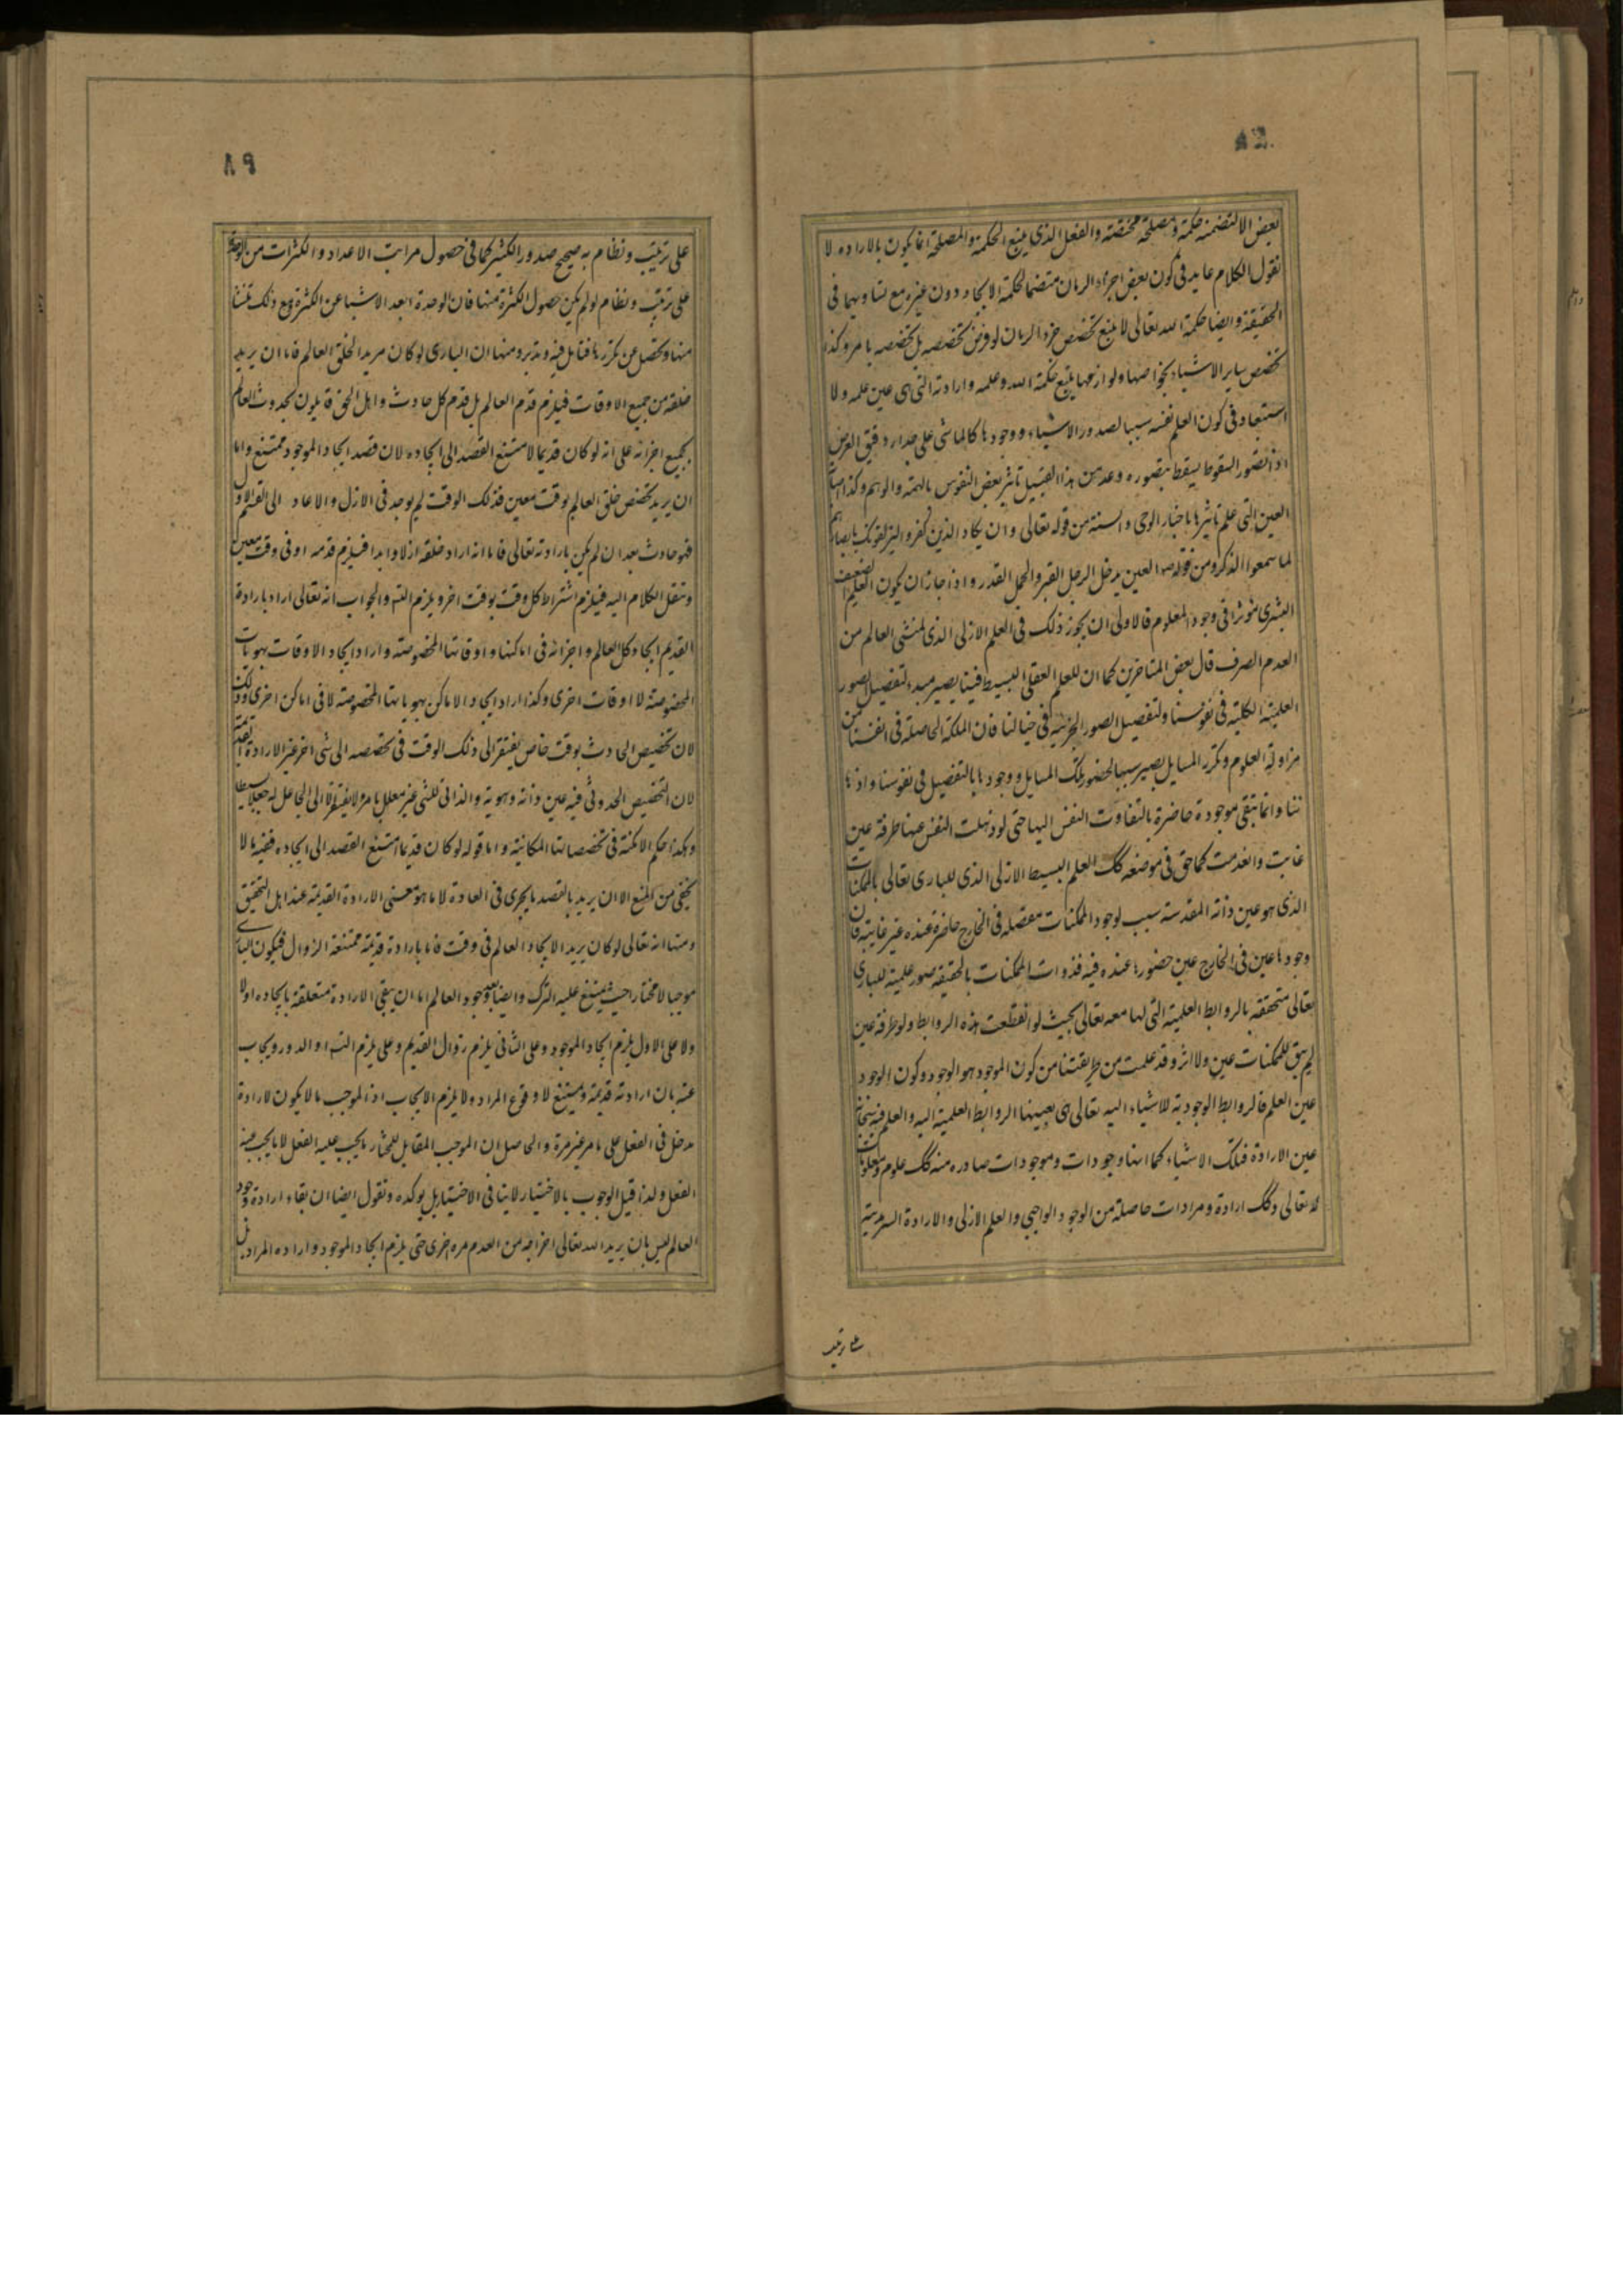 بعض الا لتضمنه حكمة و مصلحة مختصته والفعل الذي يتبع الحكمة والمصلحة انما يكون بالاراده لا
نقول الكلام عايد في كون بعض اجزاء الزمان متضمنا لحكمة الايجاد دون غيره مع تساويهما في
الحقيقة وايضا حكمة الله تعالى لا يتبع تخصص جزء الزمان لو فرض تخصصه بل تخصصه بامر وكذا
تخصص ساير الاشياء بخواصها ولوازمها يتبع حكمة الله وعلمه وارادته التي هي عين علمه ولا
استبعاد في كون العلم نفسه سببا لصدور الاشياء ووجودها كالماشي على جدار دقيق العرض
اذا تصور السقوط يسقط بتصوره وعد من هذا القبيل تاثير بعض النفوس بالهمة والوهم وكذا اصابة
العين التي علم تاثيرها باخبار الوحي والسنة من قوله تعالى وان يكاد الذين كفروا ليزلقونك بابصارهم
لما سمعوا الذكر ومن قوله ص العين يدخل الرجل القبر والجمل القدر واذا جاز ان يكون العلم الضعيف
البشري موثرا في وجود المعلوم فالاولى ان يجوز ذلك في العلم الازلي الذي لمنشئ العالم من
العدم الصرف قال بعض المتاخرين كما ان للعلم العقلي البسيط فينا يصير مبدء لتفصيل الصور
العلمية الكلية في نفوسنا ولتفصيل الصور الجزئية في خيالنا فان الملكة الحاصلة في انفسنا من
مزاولة العلوم وتكرر المسايل يصير سببا لحضور تلك المسايل ووجودها بالتفصيل في نفوسنا واذهاننا
وانما تبقى موجودة حاضرة بالتفاوت النفس اليها حتى لو ذهلت النفس عنها طرفة عين
غابت وانعدمت كما حق في موضعه كك العلم البسيط الازلي الذي للباري تعالى بالممكنات
الذي هو عين ذاته المقدسة سبب لوجود الممكنات مفصلة في الخارج حاضرة عنده غير غايبة فان
وجودها عين في الخارج عين حضورها عنده فيه فذوات الممكنات بالحقيقة صور علمية للباري
تعالى متحققة بالروابط العلمية التي لها معه تعالى بحيث لو انقطعت هذه الروابط ولو طرفة عين
لم يبق للممكنات عين ولا اثر وقد علمت من طريقتنا من كون الموجود هو الوجود وكون الوجود
عين العلم فالروابط الوجودية للاشياء اليه تعالى هي بعينها الروابط العلمية اليه والعلم فيه
عين الارادة فتلك الاشياء كما انها وجودات وموجودات صادره منه كك علوم ومعلومات
له تعالى وكك ارادة ومرادات حاصلة من الوجود الواجبي والعلم الازلي والارادة السرمدية
على ترتيب
على ترتيب ونظام به صحيح صدور الكثير كما في حصول مراتب الاعداد والكثرات من الوحدة
على ترتيب ونظام لو لم يكن حصول الكثرة منها فان الوحدة ابعد الاشيا عن الكثرة ومع ذلك تنشا
منها وتحصل من تكررها فتامل فيه وتدبر ومنها ان الباري لو كان مريدا لخلق العالم فاما ان يريد
خلقه من جميع الاوقات فيلزم قدم العالم بل قدم كل حادث واهل الحق قايلون بحدوث العالم
بجميع اجزائه على انه لو كان قديما لامتنع القصد الى ايجاده لان قصد ايجاد الموجود ممتنع واما
ان يريد تخصص خلق العالم بوقت معين فذلك الوقت لم يوجد في الازل والا عاد الى القسم الاول
فهو حادث بعد ان لم يكن بارادته تعالى فاما انه اراد خلقه ازلا وابدا فيلزم قدمه او في وقت معين
وننقل الكلام اليه فيلزم اشتراط كل وقت بوقت اخر ويلزم التس والجواب انه تعالى اراد بارادة
القديم ايجاد كل العالم واجزائه في اماكنها واوقاتها المخصوصة واراد ايجاد الاوقات بهويات
المخصوصة لا اوقات اخرى وكذا اراد ايجاد الاماكن بهوياتها المخصوصة لا في اماكن اخرى وذلك
لان تخصيص الحادث بوقت خاص يفتقر الى ذلك الوقت في تخصصه الى شي اخر غير الارادة القديمة
لان التخصيص الحدوثي فيه عين ذاته وهويته والذاتي للشي غير معلل بامر ولا يفتقر الا الى الجاعل له جعلا بسيطا
وهكذا حكم الامكنة في تخصصاتها المكانية واما قوله لو كان قديما امتنع القصد الى ايجاده ففيه ما لا
يخفى من المنع الا ان يريد بالقصد ما يجرى في العادة لا ما هو معنى الارادة القديمة عند اهل التحقيق
ومنها انه تعالى لو كان يريد الايجاد العالم في وقت فاما بارادة قديمة ممتنعة الزوال فيكون الباري
موجبا لا مختارا حيث يمتنع عليه الترك وايضا بعد وجود العالم اما ان يبقى الارادة متعلقة بايجاده او لا
ولا على الاول يلزم ايجاد الموجود وعلى الثاني يلزم زوال القديم وعلى يلزم التس او الدور ويجاب
عنه بان ارادته قديمة ويمتنع لا وقوع المراد ولا يلزم الايجاب اذ الموجب ما لا يكون لارادة
مدخل في الفعل على ما مر غير مرة والحاصل ان الموجب المقابل للمختار ما يجب عليه الفعل لا ما يجب عنه
الفعل ولذا قيل الوجوب بالاختيار لا ينافي الاختيار بل يوكده ونقول ايضا ان بقاء ارادة وجود
العالم ليس بان يريد الله تعالى اخراجه من العدم مره اخرى حتى يلزم ايجاد الموجود واراده المراد بل